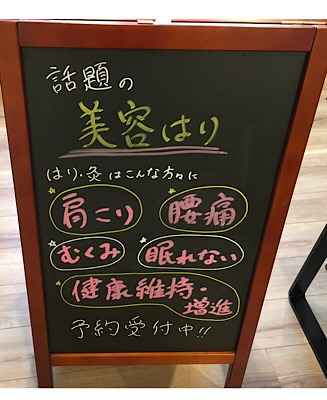 話題の
美容はり
はり・灸はこんな方々に
肩こり 腰痛
むくみ 眠れない
健康維持・
増進
予約受付中!!